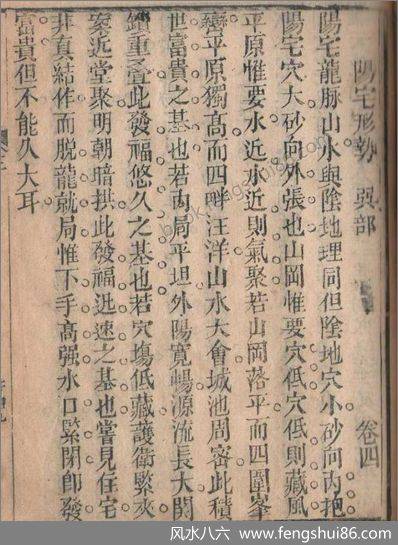 陽宅形勢 巽部 卷四
陽宅龍脉山水與陰地理同但陰地穴小砂向內抱
陽宅穴大砂向外張也山岡惟要穴低穴低則藏風
平原惟要水近水近則氣聚若山岡落平而四圍峯
巒平原獨高而四畔汪洋山水大會城池周密此積
世富貴之基也若內局平坦外陽寬暢源流長大關
鎖重叠此發福悠久之基也若穴塲低藏護衛緊夾
案近堂聚明朝暗拱此發福迅速之基也嘗見住宅
非真結作而脫龍就局惟下手高强水口緊閉卽發
富貴但不能久大耳
风水八六 www.fengshui86.com